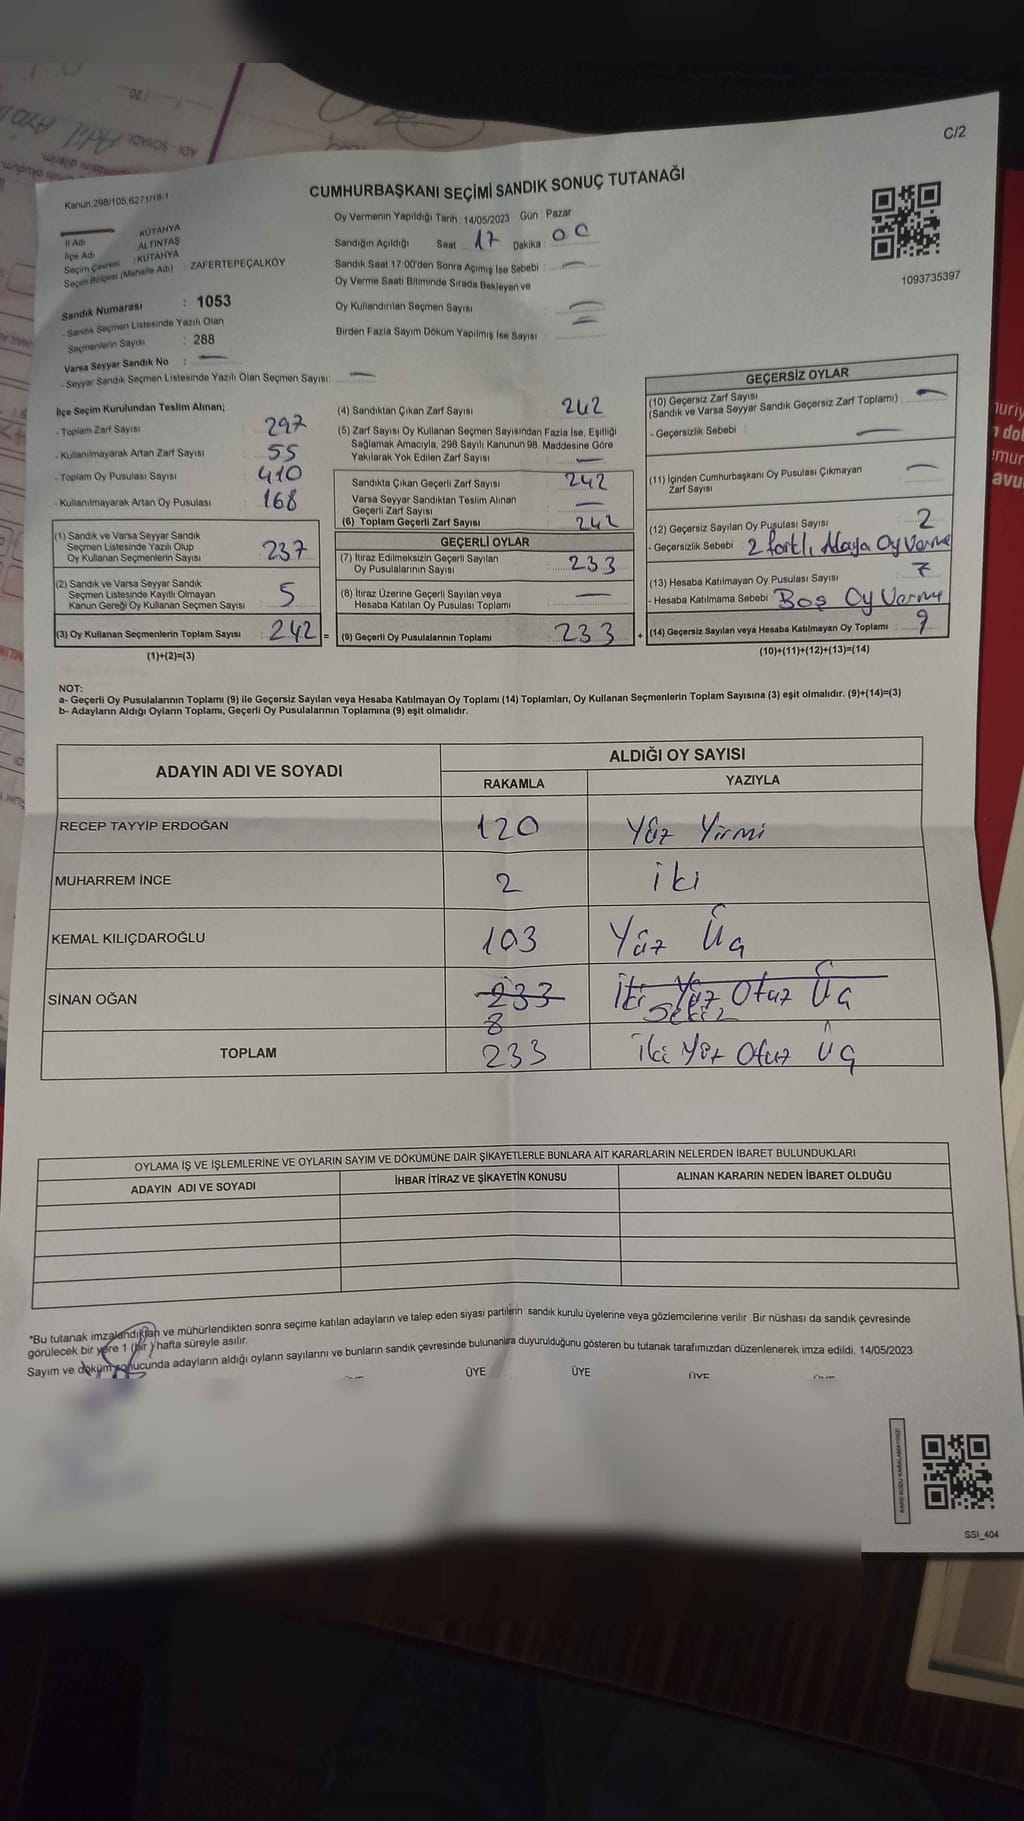 C/2
Kanun,298/105,6271/18-1
CUMHURBAŞKANI SEÇİMİ SANDIK SONUÇ TUTANAĞI
İl Adı : KÜTAHYA
İlçe Adı : ALTINTAŞ
Seçim Çevresi : KÜTAHYA
Seçim Bölgesi (Mahalle Adı) : ZAFERTEPEÇALKÖY
Sandık Numarası : 1053
- Sandık Seçmen Listesinde Yazılı Olan
Seçmenlerin Sayısı : 288
Varsa Seyyar Sandık No : —
- Seyyar Sandık Seçmen Listesinde Yazılı Olan Seçmen Sayısı: —
Oy Vermenin Yapıldığı Tarih : 14/05/2023 Gün : Pazar
Sandığın Açıldığı Saat 17 Dakika : 00
Sandık Saat 17:00'den Sonra Açımış İse Sebebi : —
Oy Verme Saati Bitiminde Sırada Bekleyen ve
Oy Kullandırılan Seçmen Sayısı : —
Birden Fazla Sayım Döküm Yapılmış İse Sayısı : —
1093735397
İlçe Seçim Kurulundan Teslim Alınan;
- Toplam Zarf Sayısı : 297
- Kullanılmayarak Artan Zarf Sayısı : 55
- Toplam Oy Pusulası Sayısı : 410
- Kullanılmayarak Artan Oy Pusulası : 168
(1) Sandık ve Varsa Seyyar Sandık
Seçmen Listesinde Yazılı Olup
Oy Kullanan Seçmenlerin Sayısı : 237
(2) Sandık ve Varsa Seyyar Sandık
Seçmen Listesinde Kayıtlı Olmayan
Kanun Gereği Oy Kullanan Seçmen Sayısı : 5
(3) Oy Kullanan Seçmenlerin Toplam Sayısı : 242 =
(1)+(2)=(3)
(4) Sandıktan Çıkan Zarf Sayısı : 242
(5) Zarf Sayısı Oy Kullanan Seçmen Sayısından Fazla İse, Eşitliği
Sağlamak Amacıyla, 298 Sayılı Kanunun 98. Maddesine Göre
Yakılarak Yok Edilen Zarf Sayısı : —
Sandıkta Çıkan Geçerli Zarf Sayısı : 242
Varsa Seyyar Sandıktan Teslim Alınan
Geçerli Zarf Sayısı : —
(6) Toplam Geçerli Zarf Sayısı : 242
GEÇERLİ OYLAR
(7) İtiraz Edilmeksizin Geçerli Sayılan
Oy Pusulalarının Sayısı : 233
(8) İtiraz Üzerine Geçerli Sayılan veya
Hesaba Katılan Oy Pusulası Toplamı : —
(9) Geçerli Oy Pusulalarının Toplamı : 233 +
GEÇERSİZ OYLAR
(10) Geçersiz Zarf Sayısı
(Sandık ve Varsa Seyyar Sandık Geçersiz Zarf Toplamı) : —
- Geçersizlik Sebebi : —
(11) İçinden Cumhurbaşkanı Oy Pusulası Çıkmayan
Zarf Sayısı : —
(12) Geçersiz Sayılan Oy Pusulası Sayısı : 2
- Geçersizlik Sebebi : 2 farklı Adaya Oy Verme
(13) Hesaba Katılmayan Oy Pusulası Sayısı : 7
- Hesaba Katılmama Sebebi : Boş Oy Verme
(14) Geçersiz Sayılan veya Hesaba Katılmayan Oy Toplamı : 9
(10)+(11)+(12)+(13)=(14)
NOT:
a- Geçerli Oy Pusulalarının Toplamı (9) ile Geçersiz Sayılan veya Hesaba Katılmayan Oy Toplamı (14) Toplamları, Oy Kullanan Seçmenlerin Toplam Sayısına (3) eşit olmalıdır. (9)+(14)=(3)
b- Adayların Aldığı Oyların Toplamı, Geçerli Oy Pusulalarının Toplamına (9) eşit olmalıdır.
ADAYIN ADI VE SOYADI
ALDIĞI OY SAYISI
RAKAMLA YAZIYLA
RECEP TAYYİP ERDOĞAN 120 Yüz Yirmi
MUHARREM İNCE 2 iki
KEMAL KILIÇDAROĞLU 103 Yüz Üç
SİNAN OĞAN 233 İki Yüz Otuz Üç
8 Sekiz
TOPLAM 233 İki Yüz Otuz Üç
OYLAMA İŞ VE İŞLEMLERİNE VE OYLARIN SAYIM VE DÖKÜMÜNE DAİR ŞİKAYETLERLE BUNLARA AİT KARARLARIN NELERDEN İBARET BULUNDUKLARI
ADAYIN ADI VE SOYADI İHBAR İTİRAZ VE ŞİKAYETİN KONUSU ALINAN KARARIN NEDEN İBARET OLDUĞU
*Bu tutanak imzalandıktan ve mühürlendikten sonra seçime katılan adayların ve talep eden siyasi partilerin sandık kurulu üyelerine veya gözlemcilerine verilir. Bir nüshası da sandık çevresinde
görülecek bir yere 1 (bir) hafta süreyle asılır.
Sayım ve döküm sonucunda adayların aldığı oyların sayılarını ve bunların sandık çevresinde bulunanlara duyurulduğunu gösteren bu tutanak tarafımızdan düzenlenerek imza edildi. 14/05/2023
ÜYE ÜYE ÜYE
KARE KODU KARALAMAYINIZ!
SSI_404